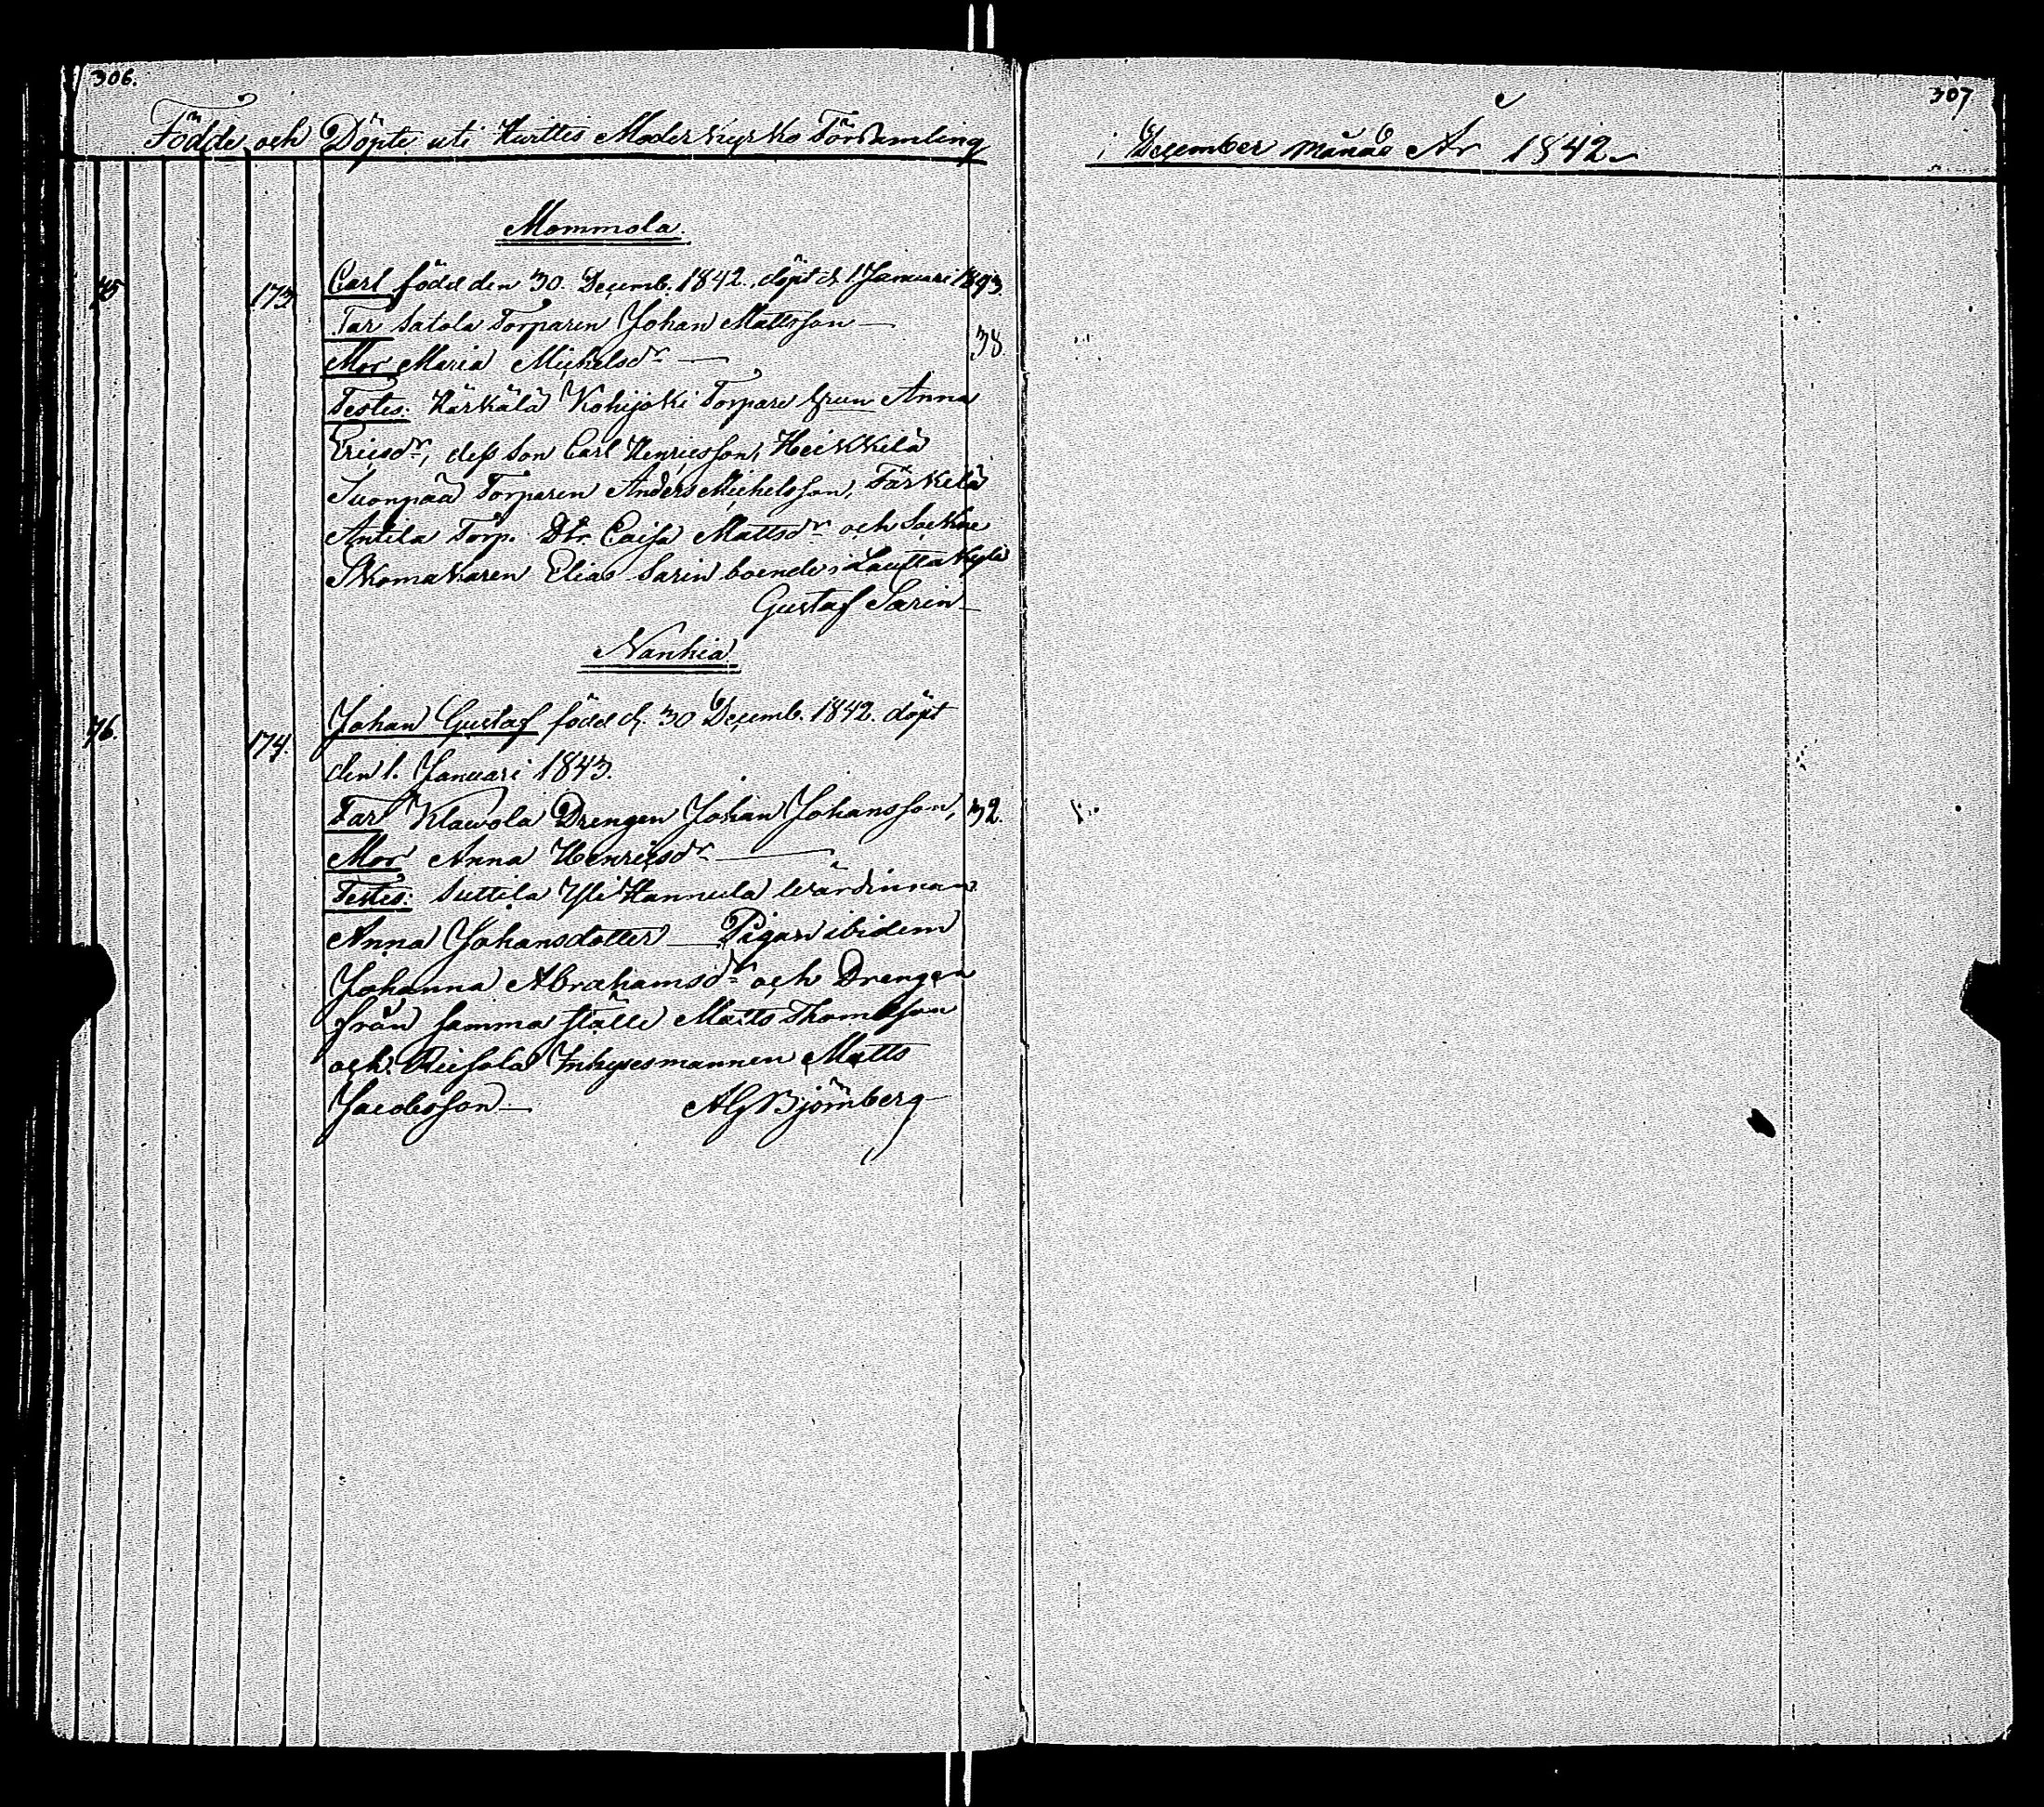 306.
Födde och Döpte uti Huittis Moderkyrko Församling
Mommola.
75
173
Carl född den 30. Decemb. 1842. döpt d. 1 Januari 1843.
Far Satola Torparen Johan Mattsson
38.
Mor Maria Michelsdr
Testes: Härkälä Kohijoki Torpare Hustrun Anna
Ericsdr, dess son Carl Henricsson, Heikkilä
Suonpää Torparen Anders Michelsson, Tärkelä
Antila Torp. Dtr. Caisa Mattsdr och Sockne
Skomakaren Elias Sarin boende i Lauttakylä
Gustaf Sarin
Nanhia
76.
174.
Johan Gustaf född d. 30 Decemb. 1842. döpt
den 1. Januari 1843.
Far Klawola Drengen Johan Johansson,
32.
Mor Anna Henricsdr
Testes: Suttila Yli Hannula wärdinnan
Anna Johansdotter Pigan ibidem
Johanna Abrahamsdr och Drengen
från samma ställe Matts Thomasson
och Inhysesmannen Matts
Jacobsson
AG Björnberg
307
i December månad År 1842